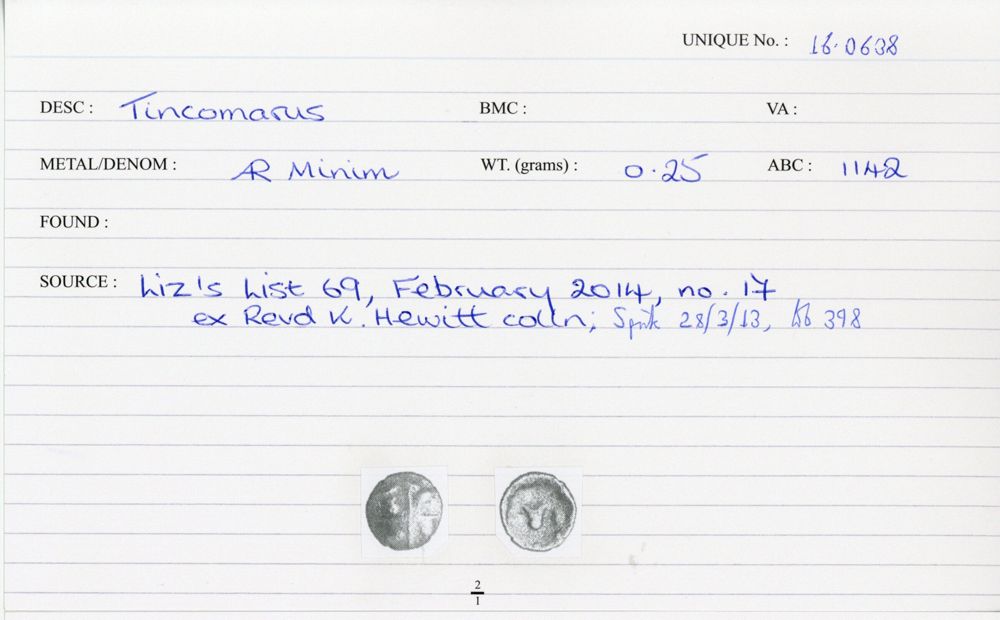 UNIQUE No. : 16.0638
DESC : Tincomarus BMC : VA :
METAL/DENOM : AR Minim WT. (grams) : 0.25 ABC : 1142
FOUND :
SOURCE : Liz's List 69, February 2014, no. 17
ex Revd K. Hewitt colln; Spink 28/3/13, lot 398
2
1